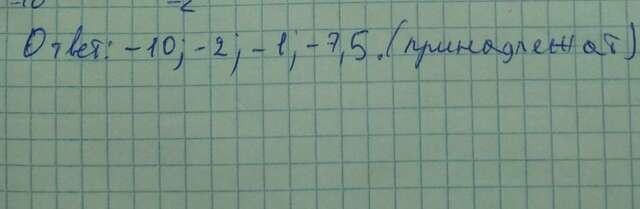 -10 -2
Ответ: -10; -2; -1; -7,5. (принадлежат)